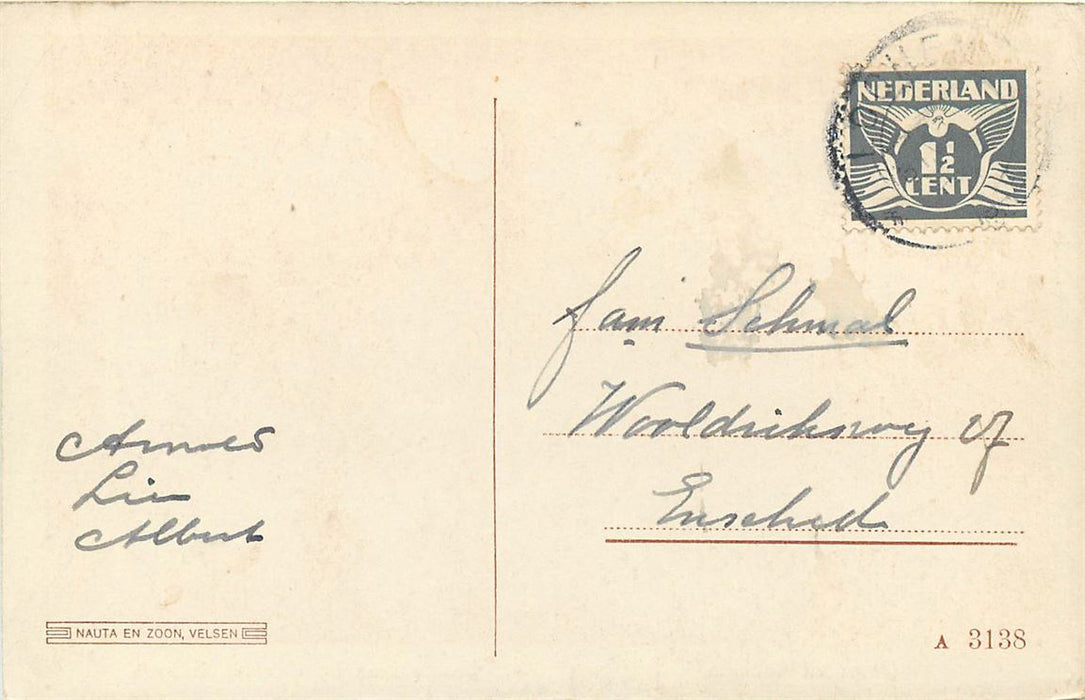 NEDERLAND
1½
CENT
fam Schmal
Wooldriksweg
Enschede
Arnold
Lien
Albert
NAUTA EN ZOON, VELSEN
A 3138